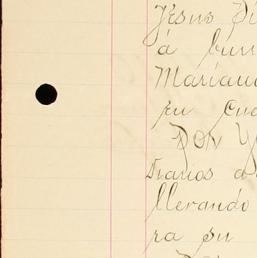 Jesus Di
á bun
Mariano
su cua
DON Y
Diarios a
llerando
ra su